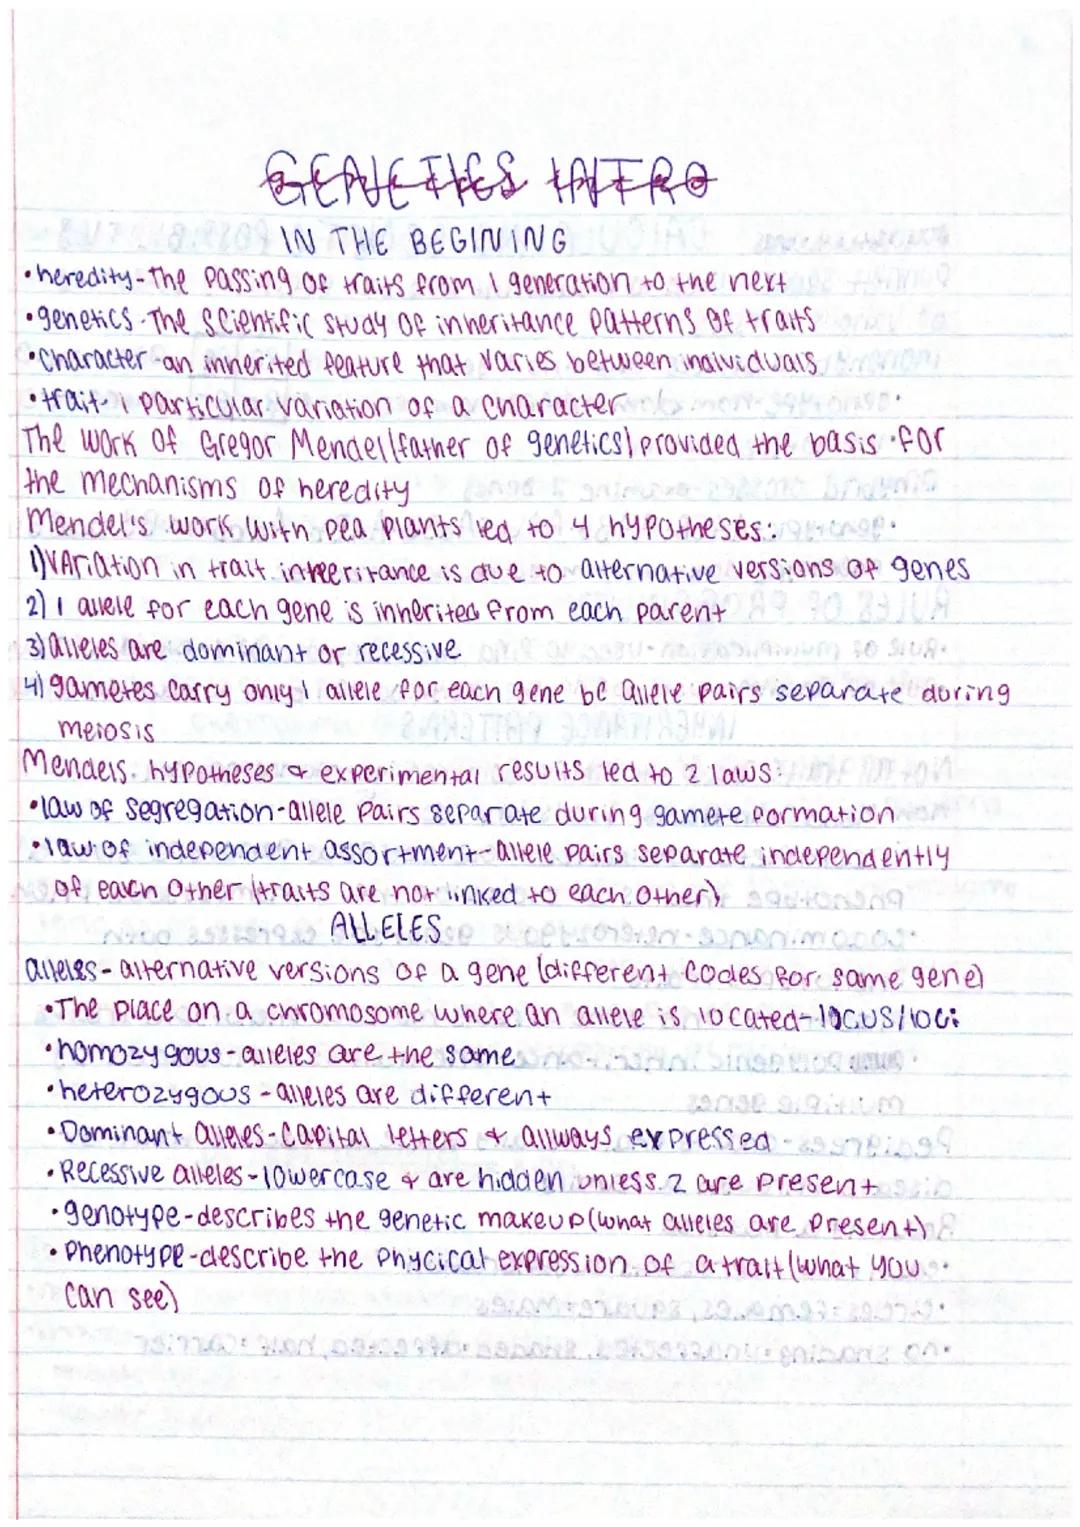 GENETICS INTRO
IN THE BEGINING
•heredity-The passing of traits from 1 generation to the next
•genetics-The scientific study of inheritance patterns of traits
•Character-an inherited feature that varies between individuals
•trait-1 particular variation of a character
The work of Gregor Mendel(father of genetics) provided the basis for
the mechanisms of heredity
Mendel's work with pea plants led to 4 hypotheses:
1)VAriation in trait inheritance is due to alternative versions of genes
2) 1 allele for each gene is inherited from each parent
3) alleles are dominant or recessive
4) gametes carry only 1 allele for each gene bc allele pairs separate during
meiosis
Mendels hypotheses & experimental results led to 2 laws:
•law of segregation-allele pairs separate during gamete formation
•law of independent assortment-allele pairs separate independently
of each other (traits are not linked to each other)
ALLELES
alleles-alternative versions of a gene (different codes for same gene)
•The place on a chromosome where an allele is located-locus/loci
•homozygous-alleles are the same
•heterozygous-alleles are different
•Dominant alleles-capital letters & allways expressed
•Recessive alleles-lowercase & are hidden unless 2 are present
•genotype-describes the genetic makeup(what alleles are present)
•phenotype-describe the phycical expression of a trait (what you
can see)